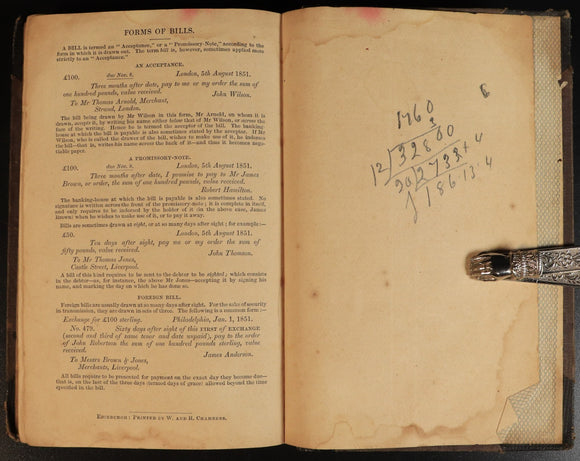 FORMS OF BILLS.
A BILL is termed an "Acceptance," or a "Promissory-Note," according to the
form in which it is drawn out. The term bill is, however, sometimes applied more
strictly to an "Acceptance."
AN ACCEPTANCE.
£100. due Nov. 8. London, 5th August 1851.
Three months after date, pay to me or my order the sum of
one hundred pounds, value received. John Wilson.
To Mr Thomas Arnold, Merchant,
Strand, London.
The bill being drawn by Mr Wilson in this form, Mr Arnold, on whom it is
drawn, accepts it, by writing his name either below that of Mr Wilson, or across the
face of the writing. Hence he is termed the acceptor of the bill. The banking-
house at which the bill is payable is also sometimes stated by the acceptor. If Mr
Wilson, who is called the drawer of the bill, wishes to make use of it, he indorses
the bill—that is, writes his name across the back of it—and thus it becomes nego-
tiable paper.
A PROMISSORY-NOTE.
£100. due Nov. 8. London, 5th August 1851.
Three months after date, I promise to pay to Mr James
Brown, or order, the sum of one hundred pounds, value received.
Robert Hamilton.
The banking-house at which the bill is payable is also sometimes stated. No
signature is written across the front of the promissory-note; it is complete in itself,
and only requires to be indorsed by the holder of it (in the above case, James
Brown) when he wishes to make use of it, or to pay it away.
Bills are sometimes drawn at sight, or at so many days after sight; for example:—
£50. London, 5th August 1851.
Ten days after sight, pay me or my order the sum of
fifty pounds, value received. John Thomson.
To Mr Thomas Jones,
Castle Street, Liverpool.
A bill of this kind requires to be sent to the debtor to be sighted; which consists
in the debtor—as, for instance, the above Mr Jones—accepting it by signing his
name, and marking the day on which he has done so.
FOREIGN BILL.
Foreign bills are usually drawn at so many days after sight. For the sake of security
in transmission, they are drawn in sets of three. The following is a common form:—
Exchange for £100 sterling. Philadelphia, Jan. 1, 1851.
No. 479. Sixty days after sight of this FIRST of EXCHANGE
(second and third of same tenor and date unpaid), pay to the order
of John Robertson the sum of one hundred pounds sterling, value
received. James Anderson.
To Messrs Brown & Jones,
Merchants, Liverpool.
All bills require to be presented for payment on the exact day they become due—
that is, on the last of the three days (termed days of grace) allowed beyond the time
specified in the bill.
EDINBURGH: PRINTED BY W. AND R. CHAMBERS.
1760
3
12 32800
20 2733 + 4
186.13.4